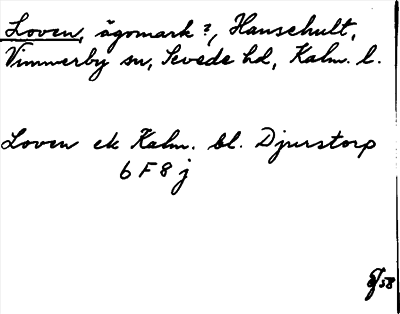 Loven, ägomark?, Hanschult,
Vimmerby sn, Sevede hd, Kalm. l.
Loven ek Kalm. bl. Djurstorp
6 F 8 j
/58